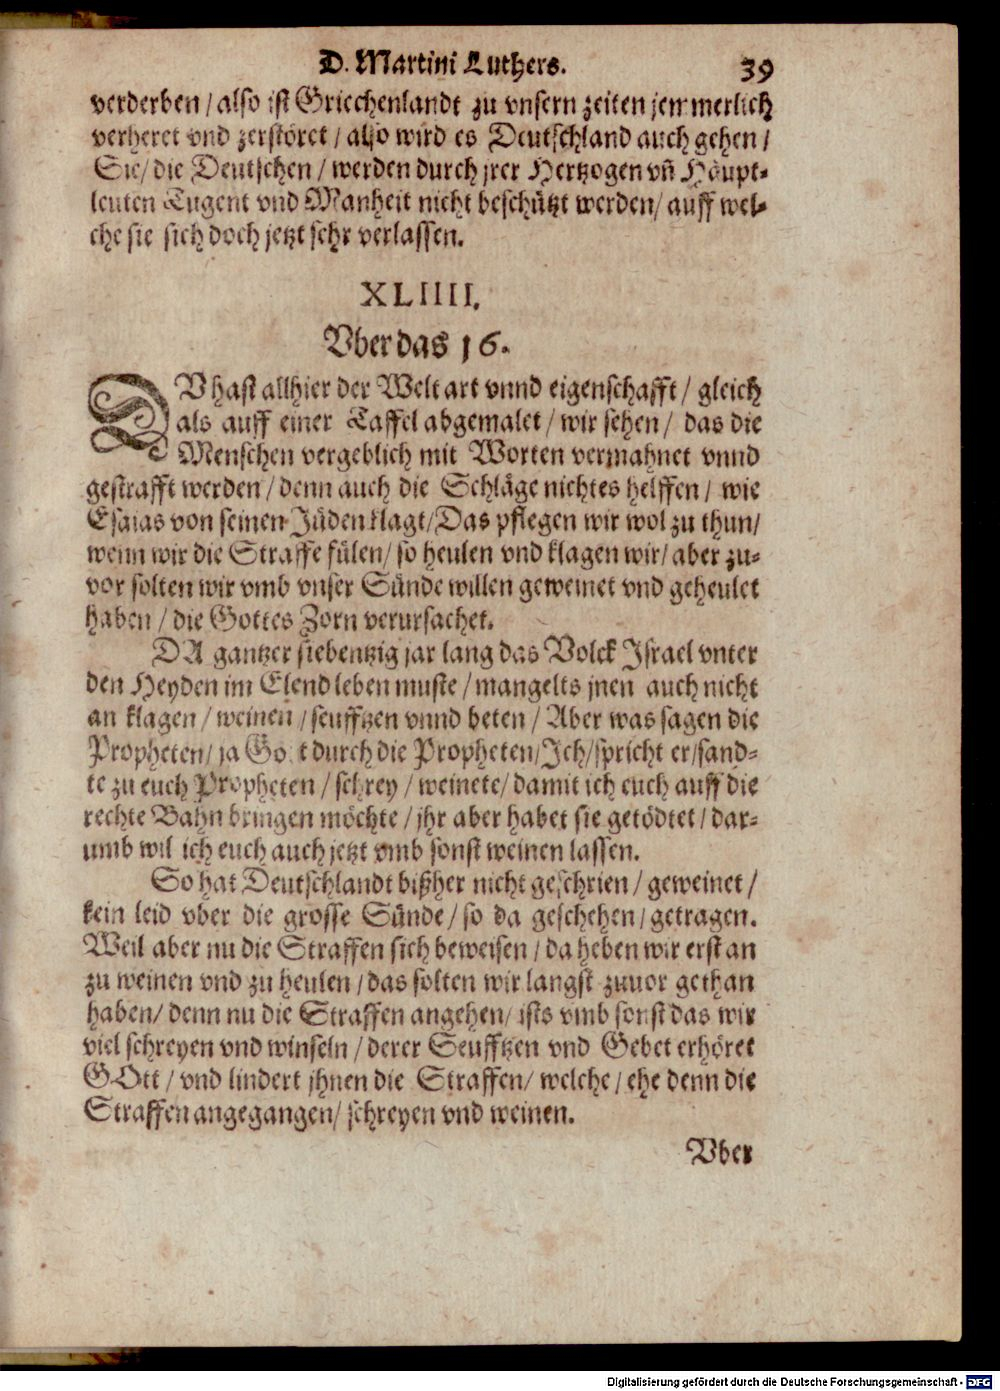 D. Martini Luthers. 39
verderben / also ist Griechenlandt zu vnsern zeiten jemmerlich
verheret vnd zerstöret / also wird es Deutschland auch gehen /
Sie / die Deutschen / werden durch jrer Hertzogen vñ Häupt-
leuten Tugent vnd Manheit nicht beschützt werden / auff wel-
che sie sich doch jetzt sehr verlassen.
XLIIII.
Vber das 16.
DV hast allhier der Welt art vnnd eigenschafft / gleich
als auff einer Taffel abgemalet / wir sehen / das die
Menschen vergeblich mit Worten vermahnet vnnd
gestrafft werden / denn auch die Schläge nichtes helffen / wie
Esaias von seinen Jüden klagt / Das pflegen wir wol zu thun /
wenn wir die Straffe fülen / so heulen vnd klagen wir / aber zu-
vor solten wir vmb vnser Sünde willen geweinet vnd geheulet
haben / die Gottes Zorn verursachet.
DA gantzer siebentzig jar lang das Volck Israel vnter
den Heyden im Elend leben muste / mangelts jnen auch nicht
an klagen / weinen / seufftzen vnnd beten / Aber was sagen die
Propheten / ja Gott durch die Propheten / Ich / spricht er / sand-
te zu euch Propheten / schrey / weinete / damit ich euch auff die
rechte Bahn bringen möchte / jhr aber habet sie getödtet / dar-
umb wil ich euch auch jetzt vmb sonst weinen lassen.
So hat Deutschlandt bißher nicht geschrien / geweinet /
kein leid vber die grosse Sünde / so da geschehen / getragen.
Weil aber nu die Straffen sich beweisen / da heben wir erst an
zu weinen vnd zu heulen / das solten wir langst zuuor gethan
haben / denn nu die Straffen angehen / ists vmb sonst das wir
viel schreyen vnd winseln / derer Seufftzen vnd Gebet erhöret
GOtt / vnd lindert jhnen die Straffen / welche / ehe denn die
Straffen angegangen / schreyen vnd weinen.
Vber
Digitalisierung gefördert durch die Deutsche Forschungsgemeinschaft - DFG